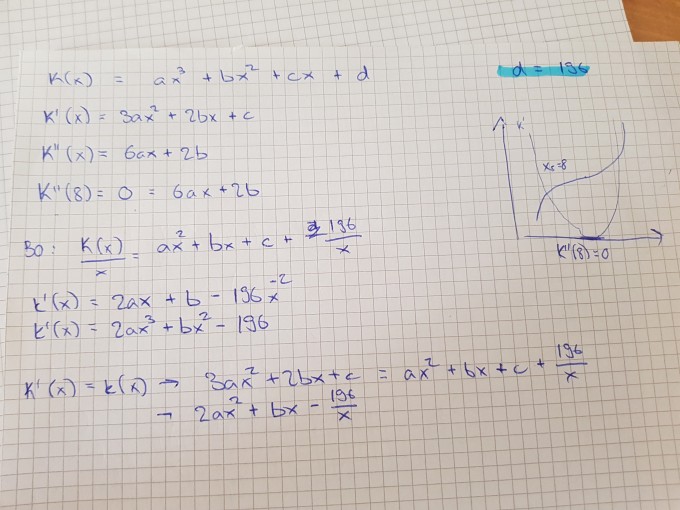 K(x) = ax³ + bx² + cx + d
d = 196
K'(x) = 3ax² + 2bx + c
K''(x) = 6ax + 2b
K''(8) = 0 = 6ax + 2b
K'
x_s = 8
K''(8) = 0
BO: K(x)/x = ax² + bx + c + 196/x
k'(x) = 2ax + b - 196x⁻²
k'(x) = 2ax³ + bx² - 196
K'(x) = k(x) → 3ax² + 2bx + c = ax² + bx + c + 196/x
→ 2ax² + bx - 196/x